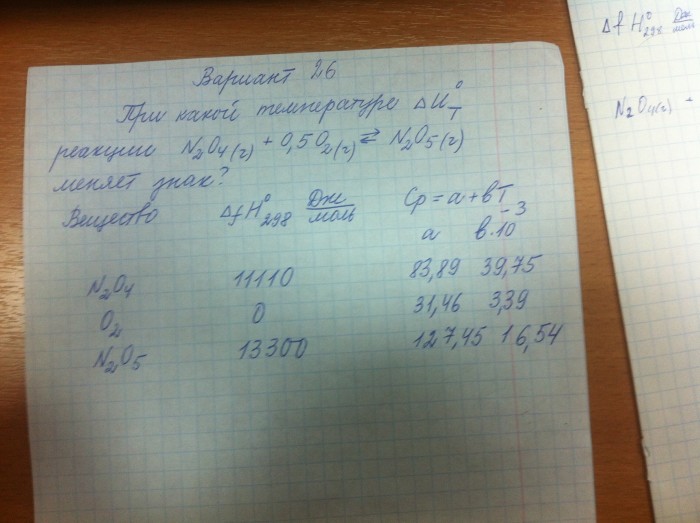 Вариант 26
При какой температуре ΔU°T
реакции N2O4(г) + 0,5O2(г) ⇄ N2O5(г)
меняет знак?
Вещество ΔfH°298 Дж/моль Cp = a + вT
a в·10^-3
N2O4 11110 83,89 39,75
O2 0 31,46 3,39
N2O5 13300 127,45 16,54
ΔfH°298 Дж/моль
N2O4(г) +